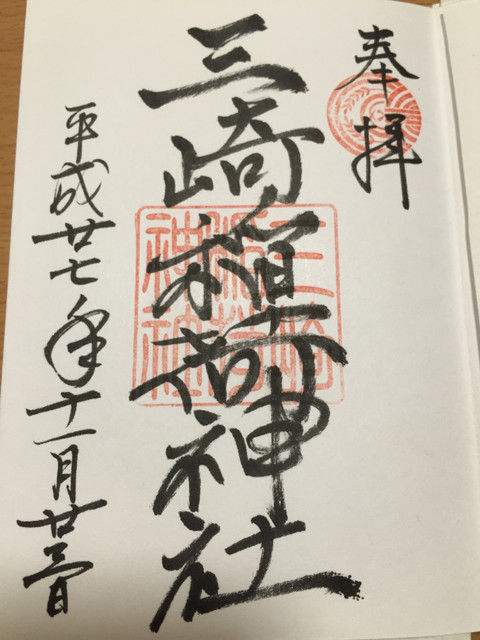 奉拝
三崎稲荷神社
三崎稲荷神社
平成廿七年十一月廿三日